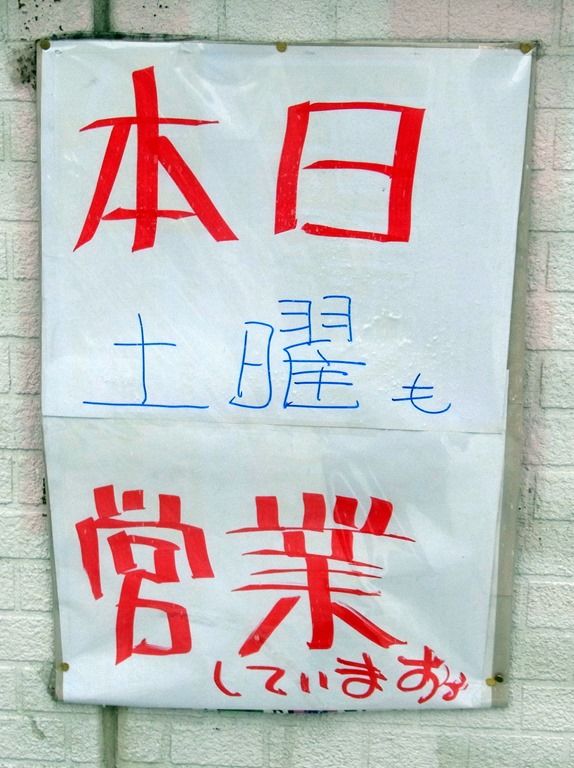 本日
土曜も
営業
していまあす